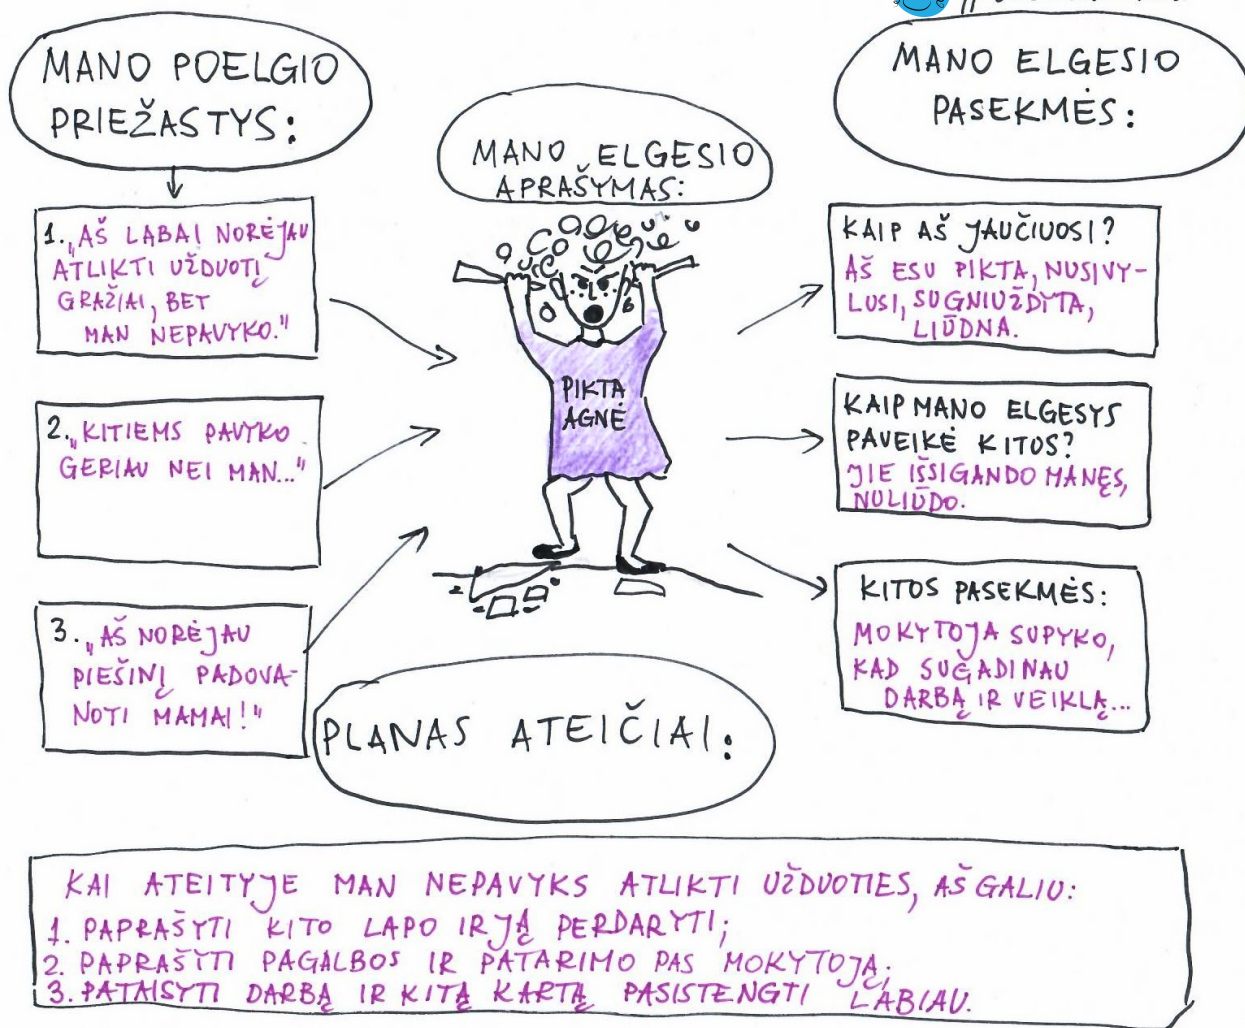 MANO POELGIO
PRIEŽASTYS:
1. „AŠ LABAI NORĖJAU
ATLIKTI UŽDUOTĮ
GRAŽIAI, BET
MAN NEPAVYKO."
2. „KITIEMS PAVYKO
GERIAU NEI MAN..."
3. „AŠ NORĖJAU
PIEŠINĮ PADOVA-
NOTI MAMAI!"
MANO ELGESIO
APRAŠYMAS:
PIKTA
AGNĖ
MANO ELGESIO
PASEKMĖS:
KAIP AŠ JAUČIUOSI?
AŠ ESU PIKTA, NUSIVY-
LUSI, SUGNIUŽDYTA,
LIŪDNA.
KAIP MANO ELGESYS
PAVEIKĖ KITOS?
JIE IŠSIGANDO MANĘS,
NULIŪDO.
KITOS PASEKMĖS:
MOKYTOJA SUPYKO,
KAD SUGADINAU
DARBĄ IR VEIKLĄ...
PLANAS ATEIČIAI:
KAI ATEITYJE MAN NEPAVYKS ATLIKTI UŽDUOTIES, AŠ GALIU:
1. PAPRAŠYTI KITO LAPO IR JĄ PERDARYTI;
2. PAPRAŠYTI PAGALBOS IR PATARIMO PAS MOKYTOJĄ;
3. PATAISYTI DARBĄ IR KITĄ KARTĄ PASISTENGTI LABIAU.